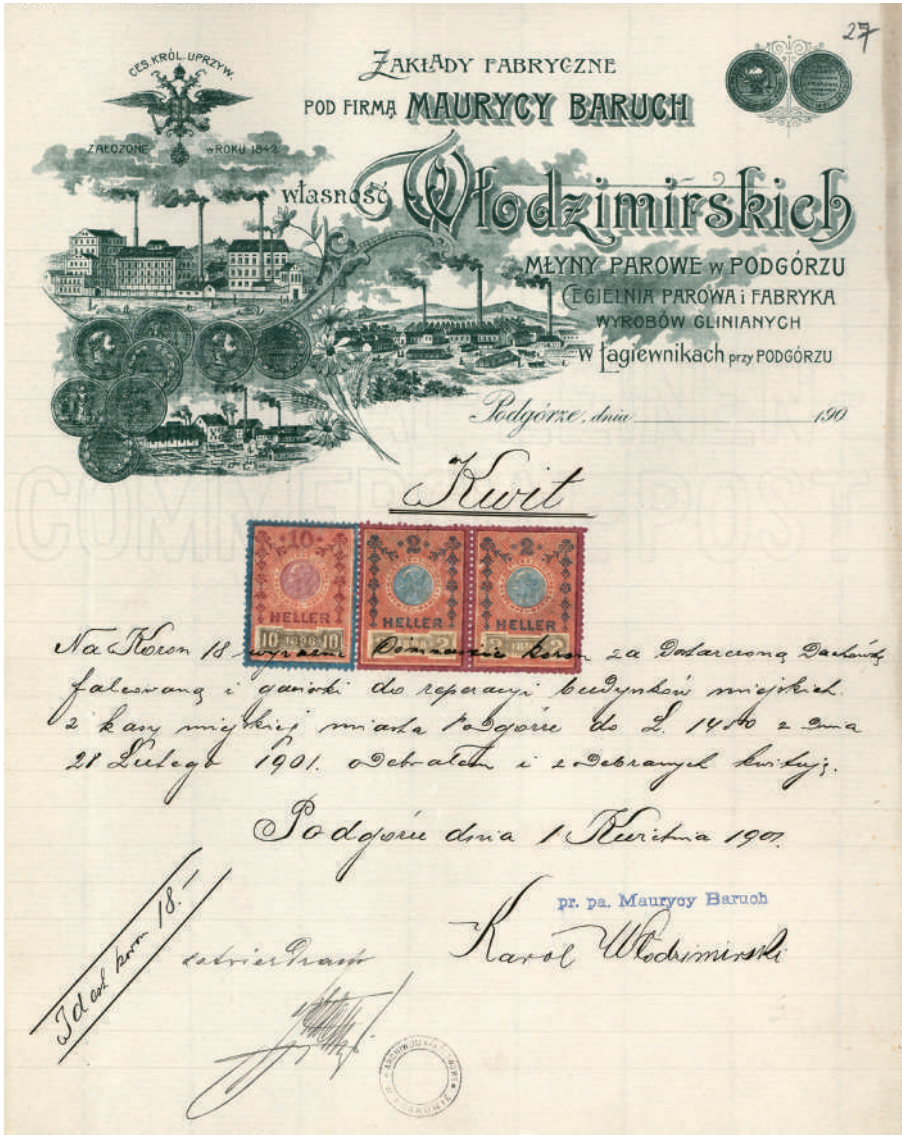 27
CES. KRÓL. UPRZYW.
ZAŁOŻONE w ROKU 1842
ZAKŁADY FABRYCZNE
POD FIRMĄ MAURYCY BARUCH
własność Włodzimirskich
MŁYNY PAROWE w PODGÓRZU
CEGIELNIA PAROWA i FABRYKA
WYROBÓW GLINIANYCH
w Łagiewnikach przy PODGÓRZU
Podgórze, dnia 190
COMMERCE POST
Kwit
10 2 2
HELLER HELLER HELLER
10 1898 10 2 2
Na Koron 18 wyraźnie Ośmnaście koron za dostarczoną Dachówkę
falcowaną i gąsiorki do reperacyi budynków miejskich
z kasy miejskiej miasta Podgórze do L. 1450 z dnia
28 Lutego 1901. odebrałem i z odebranych kwituję.
Podgórze dnia 1 Kwietnia 1901.
pr. pa. Maurycy Baruch
Karol Włodzimirski
Id est koron 18.-
zatwierdzam
ARCHIWUM PAŃSTWOWE W KRAKOWIE